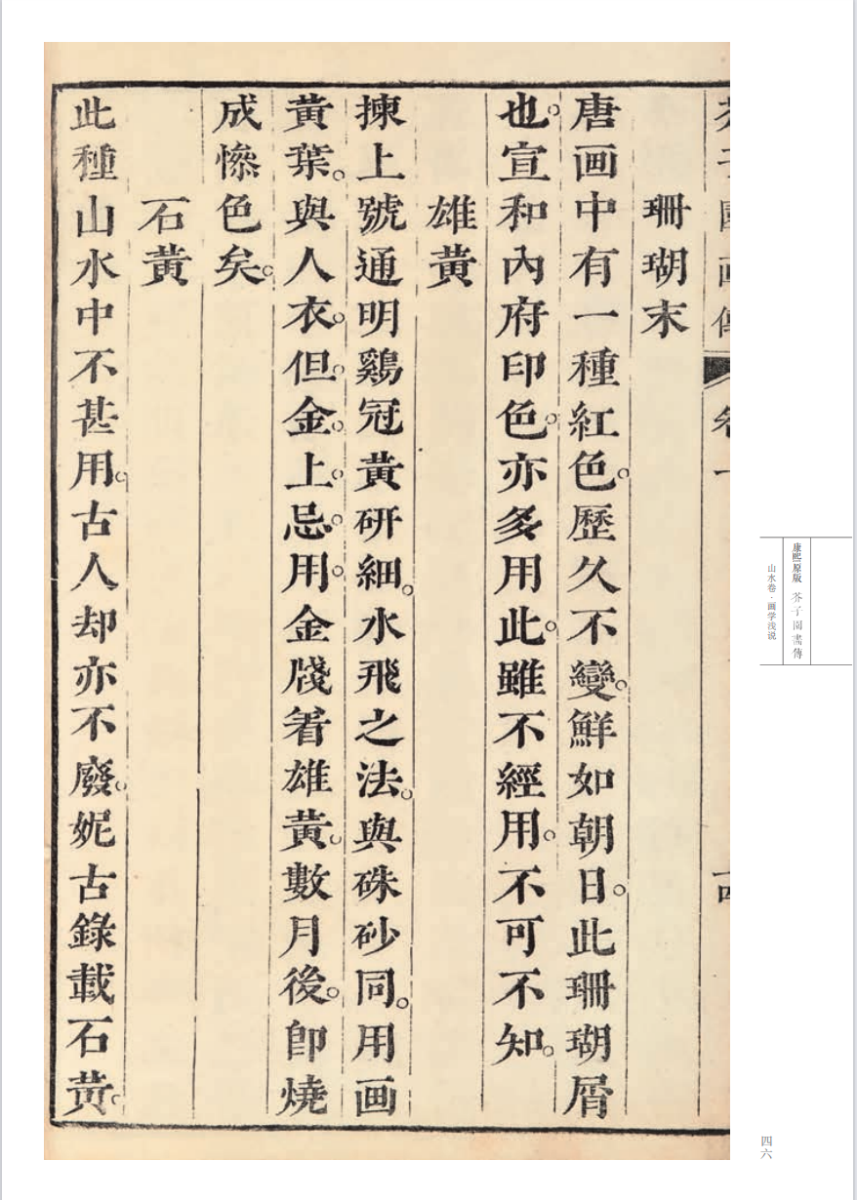 康熙原版 芥子園畫傳
山水卷·画学浅说
珊瑚末
唐画中有一種紅色。歷久不變。鮮如朝日。此珊瑚屑
也。宣和內府印色。亦多用此。雖不經用。不可不知。
雄黃
揀上號通明鷄冠黃研細。水飛之法。與硃砂同。用画
黃葉。與人衣。但。金。上。忌。用。金牋着雄黃。數月後。卽燒
成慘色矣。
石黃
此種山水中不甚用。古人却亦不廢。妮古錄載石黃。
四六